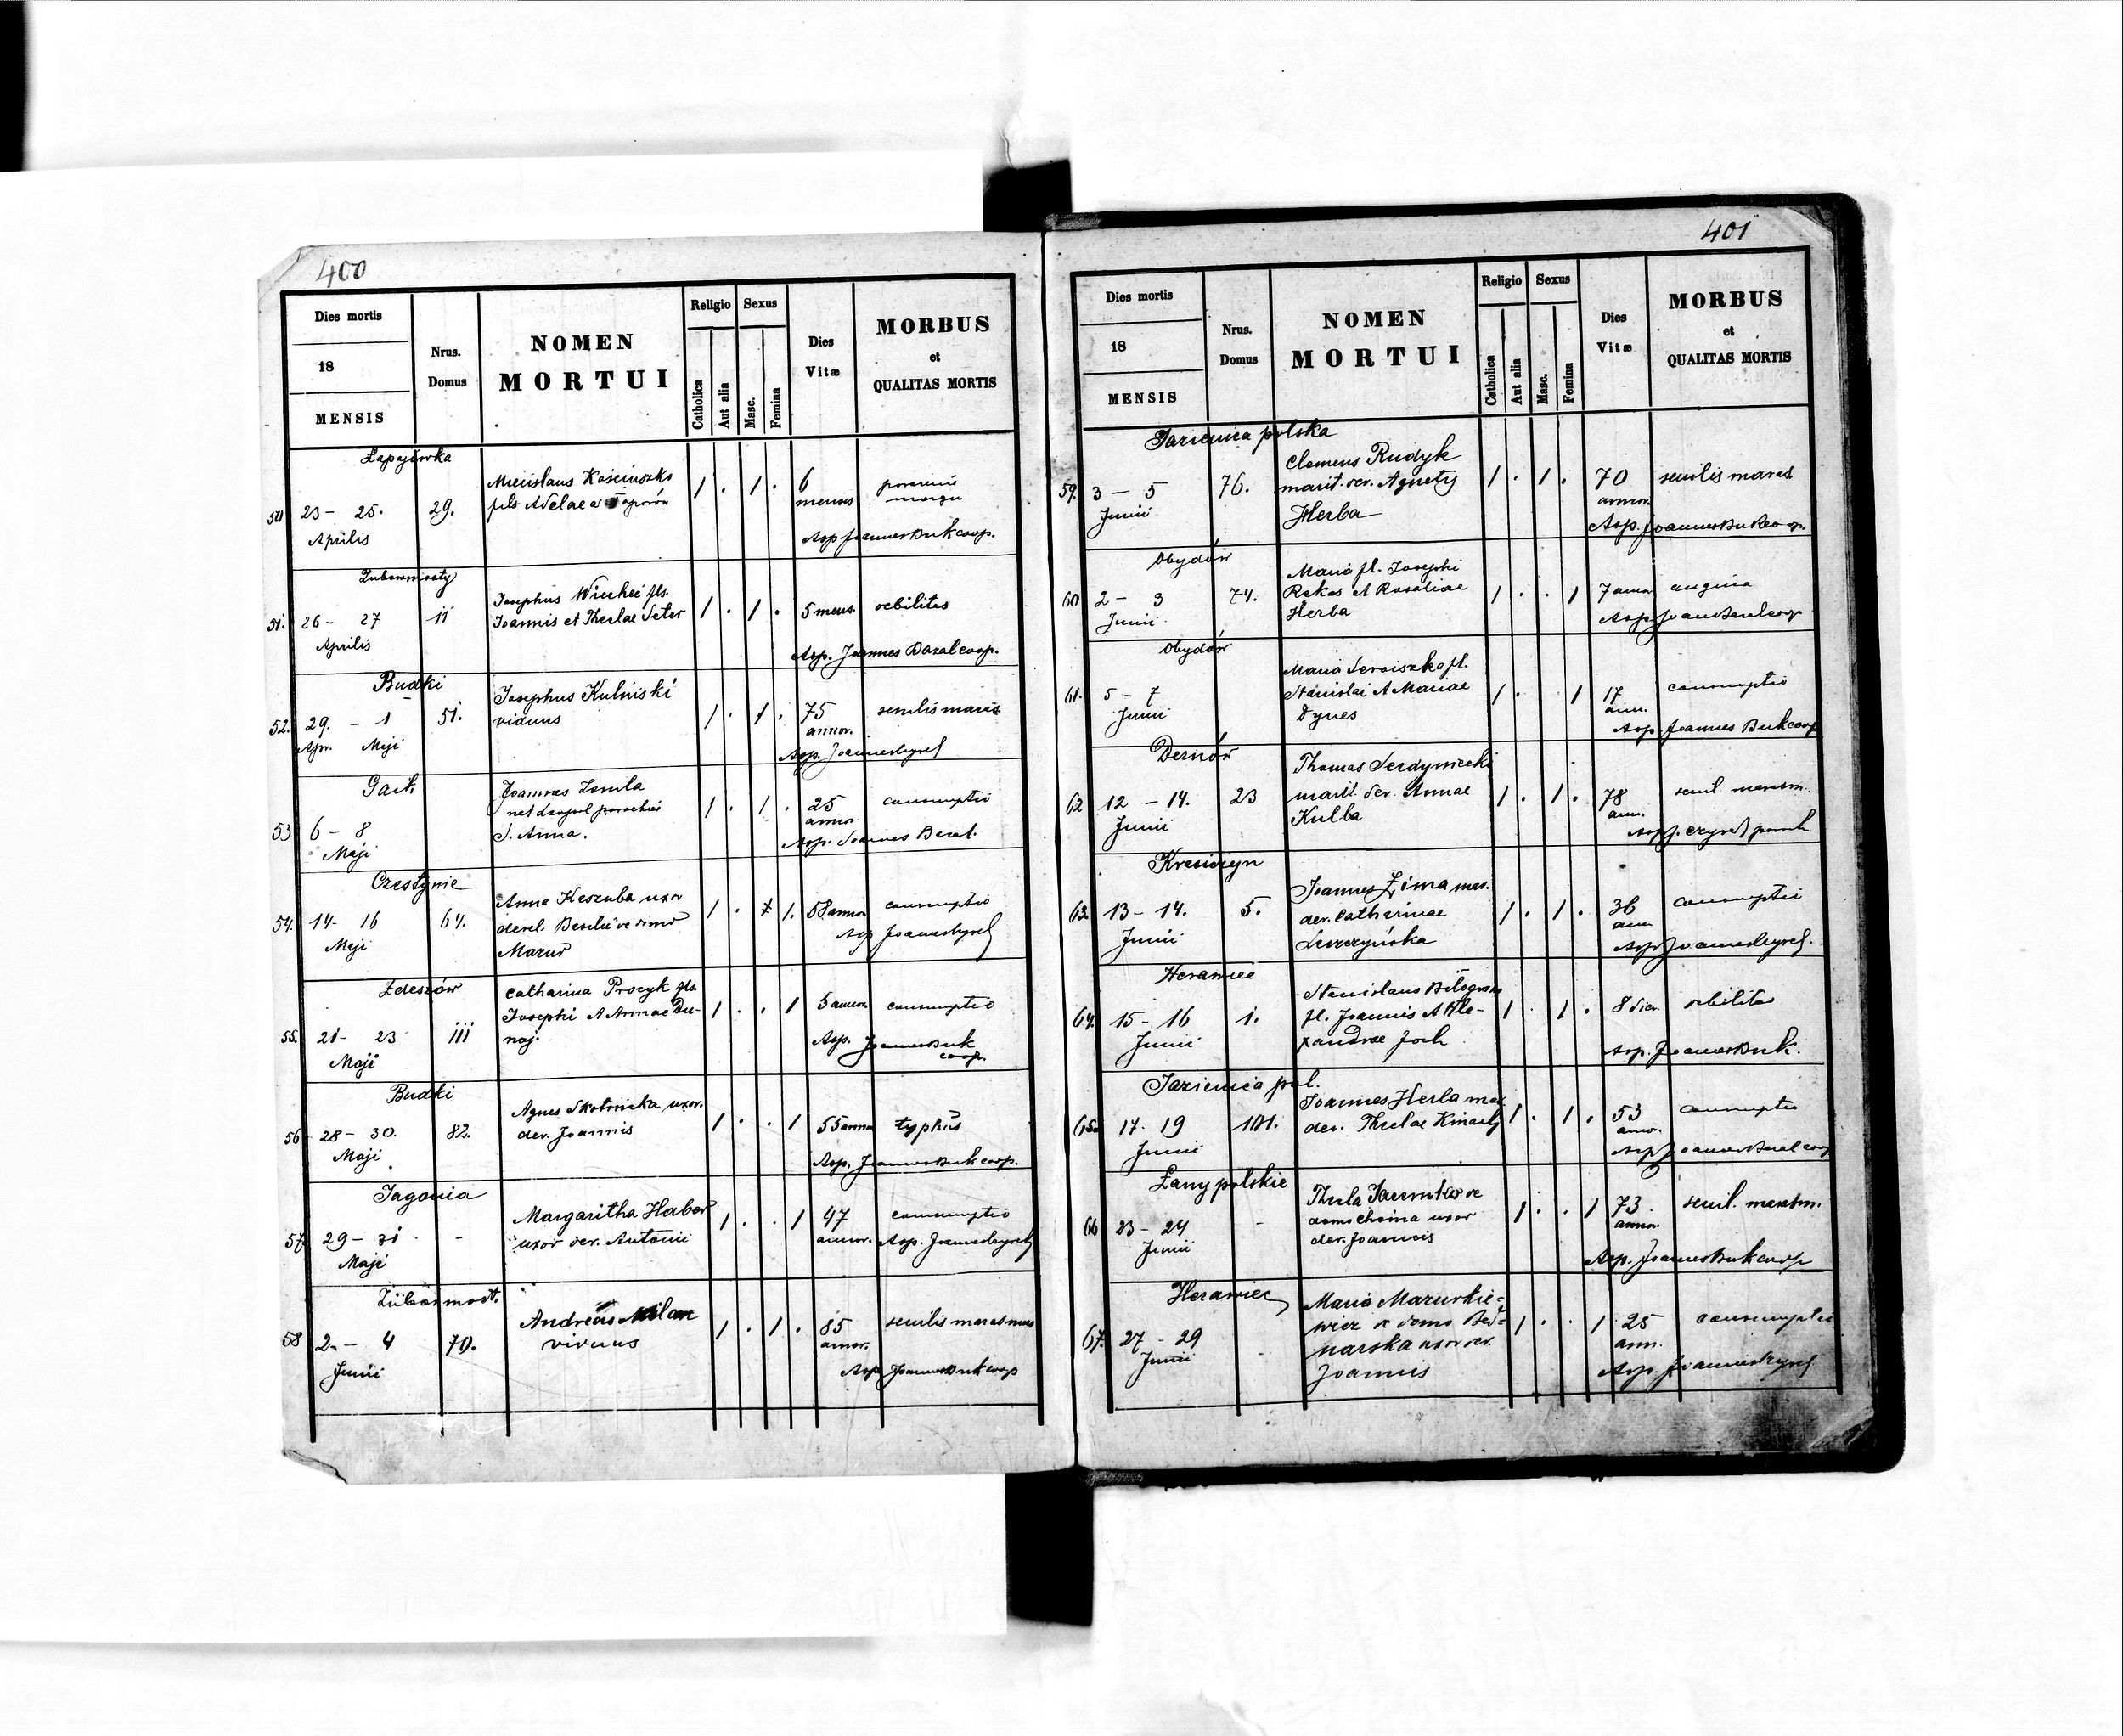 400
Dies mortis
18
MENSIS
Nrus.
Domus
NOMEN
MORTUI
Religio
Catholica
Aut alia
Sexus
Masc.
Femina
Dies
Vitæ
MORBUS
et
QUALITAS MORTIS
Łapajówka
50 23 - 25. 29. Mieislaus Kościuszko 1 . 1 . 6
Aprilis fils Adelae menses
Asp Joannes Buk coop.
51. 26 - 27 11 Josephus fls. 1 . 1 . 5 mens. debilitas
Aprilis Joannis et Theclae
Asp. Joannes Bazal coop.
Budki
52. 29. - 1 51. Josephus Kulniski 1 . 1 . 75 senilis
Apr. Maji viduus annor.
Asp. Joannes
Gaik
53 6 - 8 Joannes Zemla 1 . 1 . 25 consumptio
Maji parochia annor
S. Anna.
Asp. Joannes
Czestynie
54. 14 - 16 64. Anna Keszuba uxor 1 . 1. 58 annor consumptio
Maji derel. de domo
Mazur
Asp Joannes
Zdeszów
55. 21 - 23 111 Catharina Procyk fls 1 . . 1 5 annor. consumptio
Maji Josephi et Annae Du-
naj.
Asp. Joannes Buk
coop.
Budki
56 28 - 30. 82. Agnes Skotnicka uxor. 1 . . 1 55 annor typhus
Maji der. Joannis
Asp. Joannes Buk coop.
Jagonia
57 29 - 31 - Margaritha Habor 1 . . 1 47 consumptio
Maji uxor der. Antonii annor. Asp. Joannes
58 2. - 4 70. Andreas Milan 1 . 1 . 85 senilis marasmus
Junii viduus annor.
Asp Joannes Buk coop
401
Dies mortis
18
MENSIS
Nrus.
Domus
NOMEN
MORTUI
Religio
Catholica
Aut alia
Sexus
Masc.
Femina
Dies
Vitæ
MORBUS
et
QUALITAS MORTIS
Jazienica polska
59. 3 - 5 76. Clemens Rudyk 1 . 1 . 70 senilis maras
Junii marit. der. Agnetis annor.
Herba
Asp. Joannes Buk coop.
Obydów
60 2 - 3 74. Maria fl. Josephi 1 . . 1 7 annor angina
Junii Rekas et Rosaliae
Herba
Obydów
61. 5 - 7 Maria fl. 1 . 1 17 consumptio
Junii Stanislai et Mariae ann.
Dynes
Asp. Joannes Buk coop
Dernów
62 12 - 14. 23 Thomas 1 . 1 . 78 senil. marasm.
Junii marit. der. Annae ann.
Kulba
Kresiczyn
63. 13 - 14. 5. Joannes Zima mar. 1 . 1 . 36 consumptio
Junii der. Catharinae ann
Leszczyńska
Asp Joannes
Heraniec
64. 15 - 16 1. Stanislaus 1 . 1 . 8 dier. debilitas
Junii fl. Joannis et Ale-
xandrae Joch
Asp. Joannes Buk.
Jazienica pol.
65. 17 - 19 101. Joannes Herba mar. 1 . 1 . 53 consumptio
Junii der. Theclae annor.
Asp Joannes Bazal coop
Łany polskie
66 23 - 24 - Thecla de 1 . . 1 73 senil. marasm.
Junii domo uxor annor
der. Joannis
Asp. Joannes Buk coop
Heraniec
67. 27 - 29 Maria Mazurkie- 1 . . 1 25 consumptio
Junii wicz de domo Bed- ann.
narska uxor der.
Joannis
Asp. Joannes